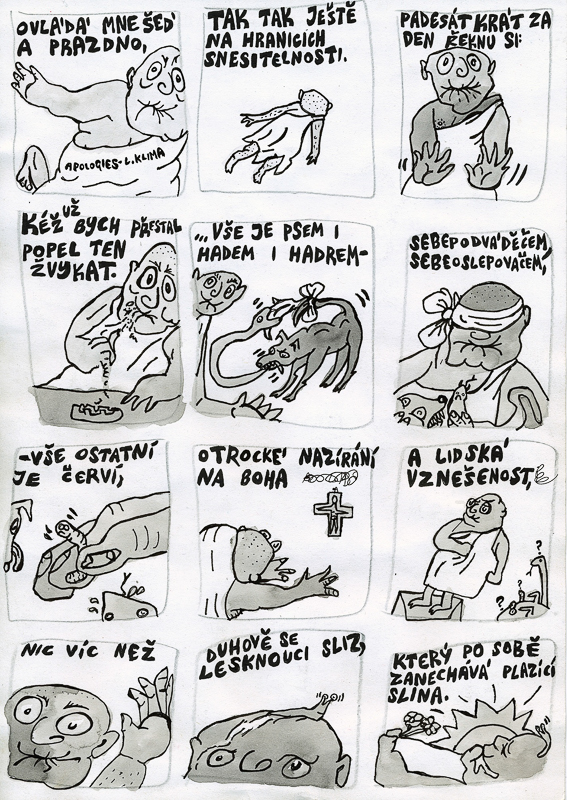 OVLÁDÁ MNE ŠEĎ
A PRÁZDNO,
APOLOGIES - L. KLIMA
TAK TAK JEŠTĚ
NA HRANICÍCH
SNESITELNOSTI.
PADESÁT KRÁT ZA
DEN ŘEKNU SI:
KÉŽ UŽ BYCH PŘESTAL
POPEL TEN
ŽVÝKAT.
...VŠE JE PSEM I
HADEM I HADREM-
SEBEPODVÁDĚČEM,
SEBEOSLEPOVAČEM,
-VŠE OSTATNÍ
JE ČERVÍ,
OTROCKÉ NAZÍRÁNÍ
NA BOHA
A LIDSKÁ
VZNEŠENOST,
?
?
?
NIC VÍC NEŽ
DUHOVĚ SE
LESKNOUCI SLIZ,
KTERÝ PO SOBĚ
ZANECHÁVÁ PLAZÍCÍ
SLINA.